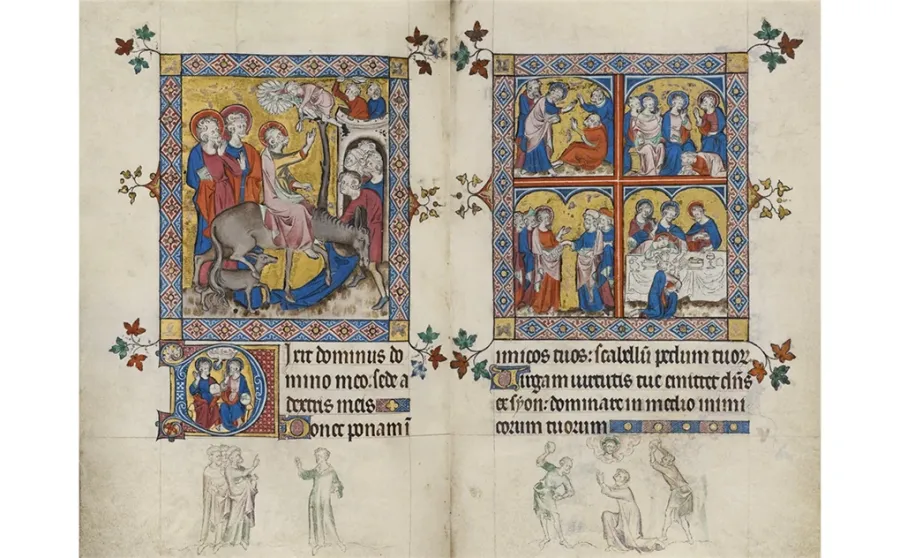 Dixit dominus do
mino meo: sede a
dextris meis
Donec ponam i
nimicos tuos: scabellū pedum tuor
Virgam virtutis tue emittet dn̄s
ex syon: dominare in medio inimi
corum tuorum